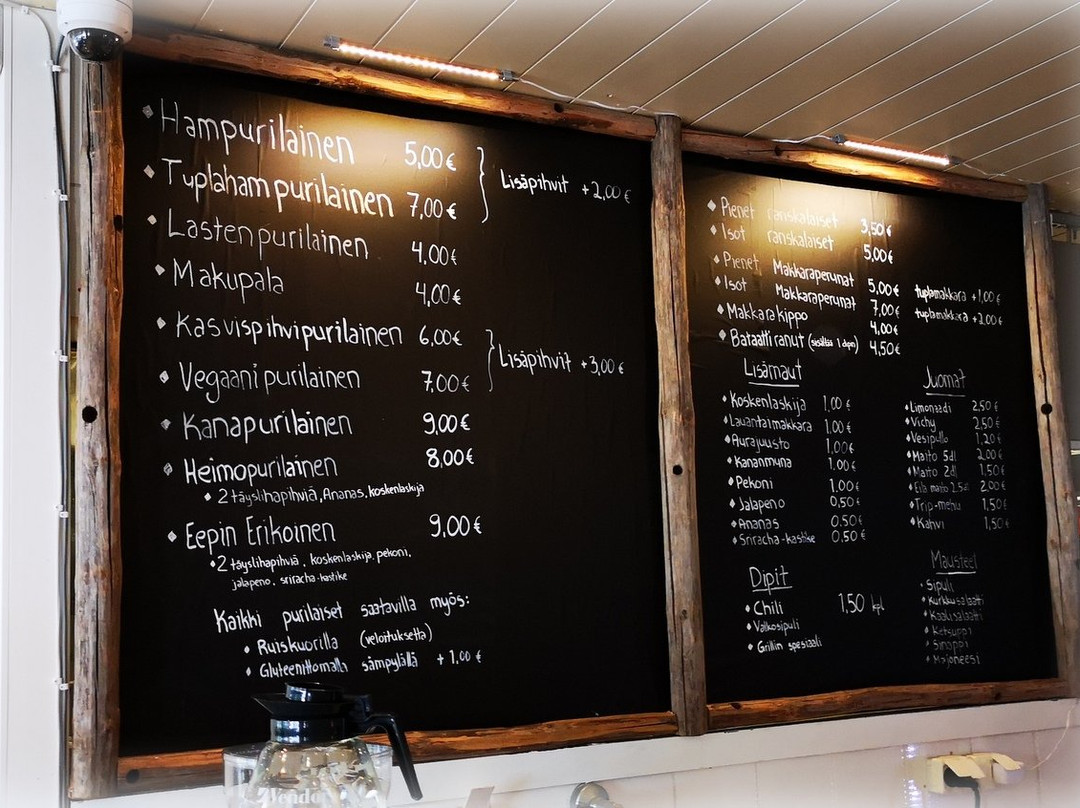 Hampurilainen 5,00€
Tuplahampurilainen 7,00€
Lisäpihvit +2,00€
Lastenpurilainen 4,00€
Makupala 4,00€
Kasvispihvipurilainen 6,00€
Vegaanipurilainen 7,00€
Lisäpihvit +3,00€
Kanapurilainen 9,00€
Heimopurilainen 8,00€
2 täyslihapihviä, Ananas, koskenlaskija
Eepin Erikoinen 9,00€
2 täyslihapihviä, koskenlaskija, pekoni,
jalapeno, sriracha-kastike
Kaikki purilaiset saatavilla myös:
Ruiskuorilla (veloituksetta)
Gluteenittomalla sämpylällä +1,00€
Pienet ranskalaiset 3,50€
Isot ranskalaiset 5,00€
Pienet Makkaraperunat 5,00€ tuplamakkara +1,00€
Isot Makkaraperunat 7,00€ tuplamakkara +2,00€
Makkarakippo 4,00€
Bataattiranut (sisältää 1 dipin) 4,50€
Lisärnaut
Koskenlaskija 1,00€
Lauantaimakkara 1,00€
Aurajuusto 1,00€
Kananmuna 1,00€
Pekoni 1,00€
Jalapeno 0,50€
Ananas 0,50€
Sriracha-kastike 0,50€
Juomat
Limonaadi 2,50€
Vichy 2,50€
Vesipullo 1,20€
Maito 5dl 2,00€
Maito 2dl 1,50€
Eila maito 2.5dl 2,00€
Trip-mehu 1,50€
Kahvi 1,50€
Dipit
Chili 1,50 kpl
Valkosipuli
Grillin spesiaali
Mausteet
Sipuli
Kurkkusalaatti
Kaalisalaatti
Ketsuppi
Sinappi
Majoneesi